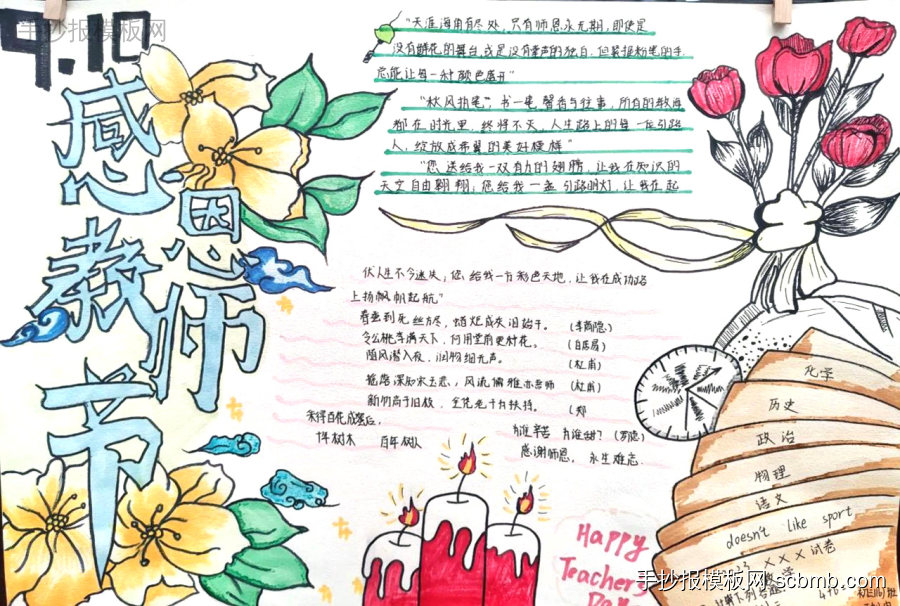 手抄报模板网
9.10
感恩
教师
节
"天涯海角有尽处,只有师恩永无期,即使是
没有鲜花的舞台,或是没有掌声的独白,但紧握粉笔的手
总能让每一种颜色盛开"
"秋风拍笔,书一笔馨香与往事,所有的教诲
都在时光里,终将不天,人生路上的每一位引路
人,绽放成希冀的美好模样"
"您送给我一双有力的翅膀,让我在知识的
天空自由翱翔;您给我一盏引路明灯,让我在起
伏人生不今迷失;您给我一方彩色天地,让我在成功路
上扬帆起航"
春蚕到死丝方尽,蜡炬成灰泪始干。(李商隐)
令公桃李满天下,何用堂前更种花。(白居易)
随风潜入夜,润物细无声。(杜甫)
摇落深知宋玉悲,风流儒雅亦吾师(杜甫)
新竹高于旧枝,全凭老干为扶持。(郑
采得百花成蜜后,
为谁辛苦为谁甜?(罗隐)
十年树木 百年树人
感谢师恩,永生难忘
化学
历史
政治
物理
语文
doesn't like sport
×××试卷
数学
Happy
Teacher's
Day
手抄报模板网 scbmb.com